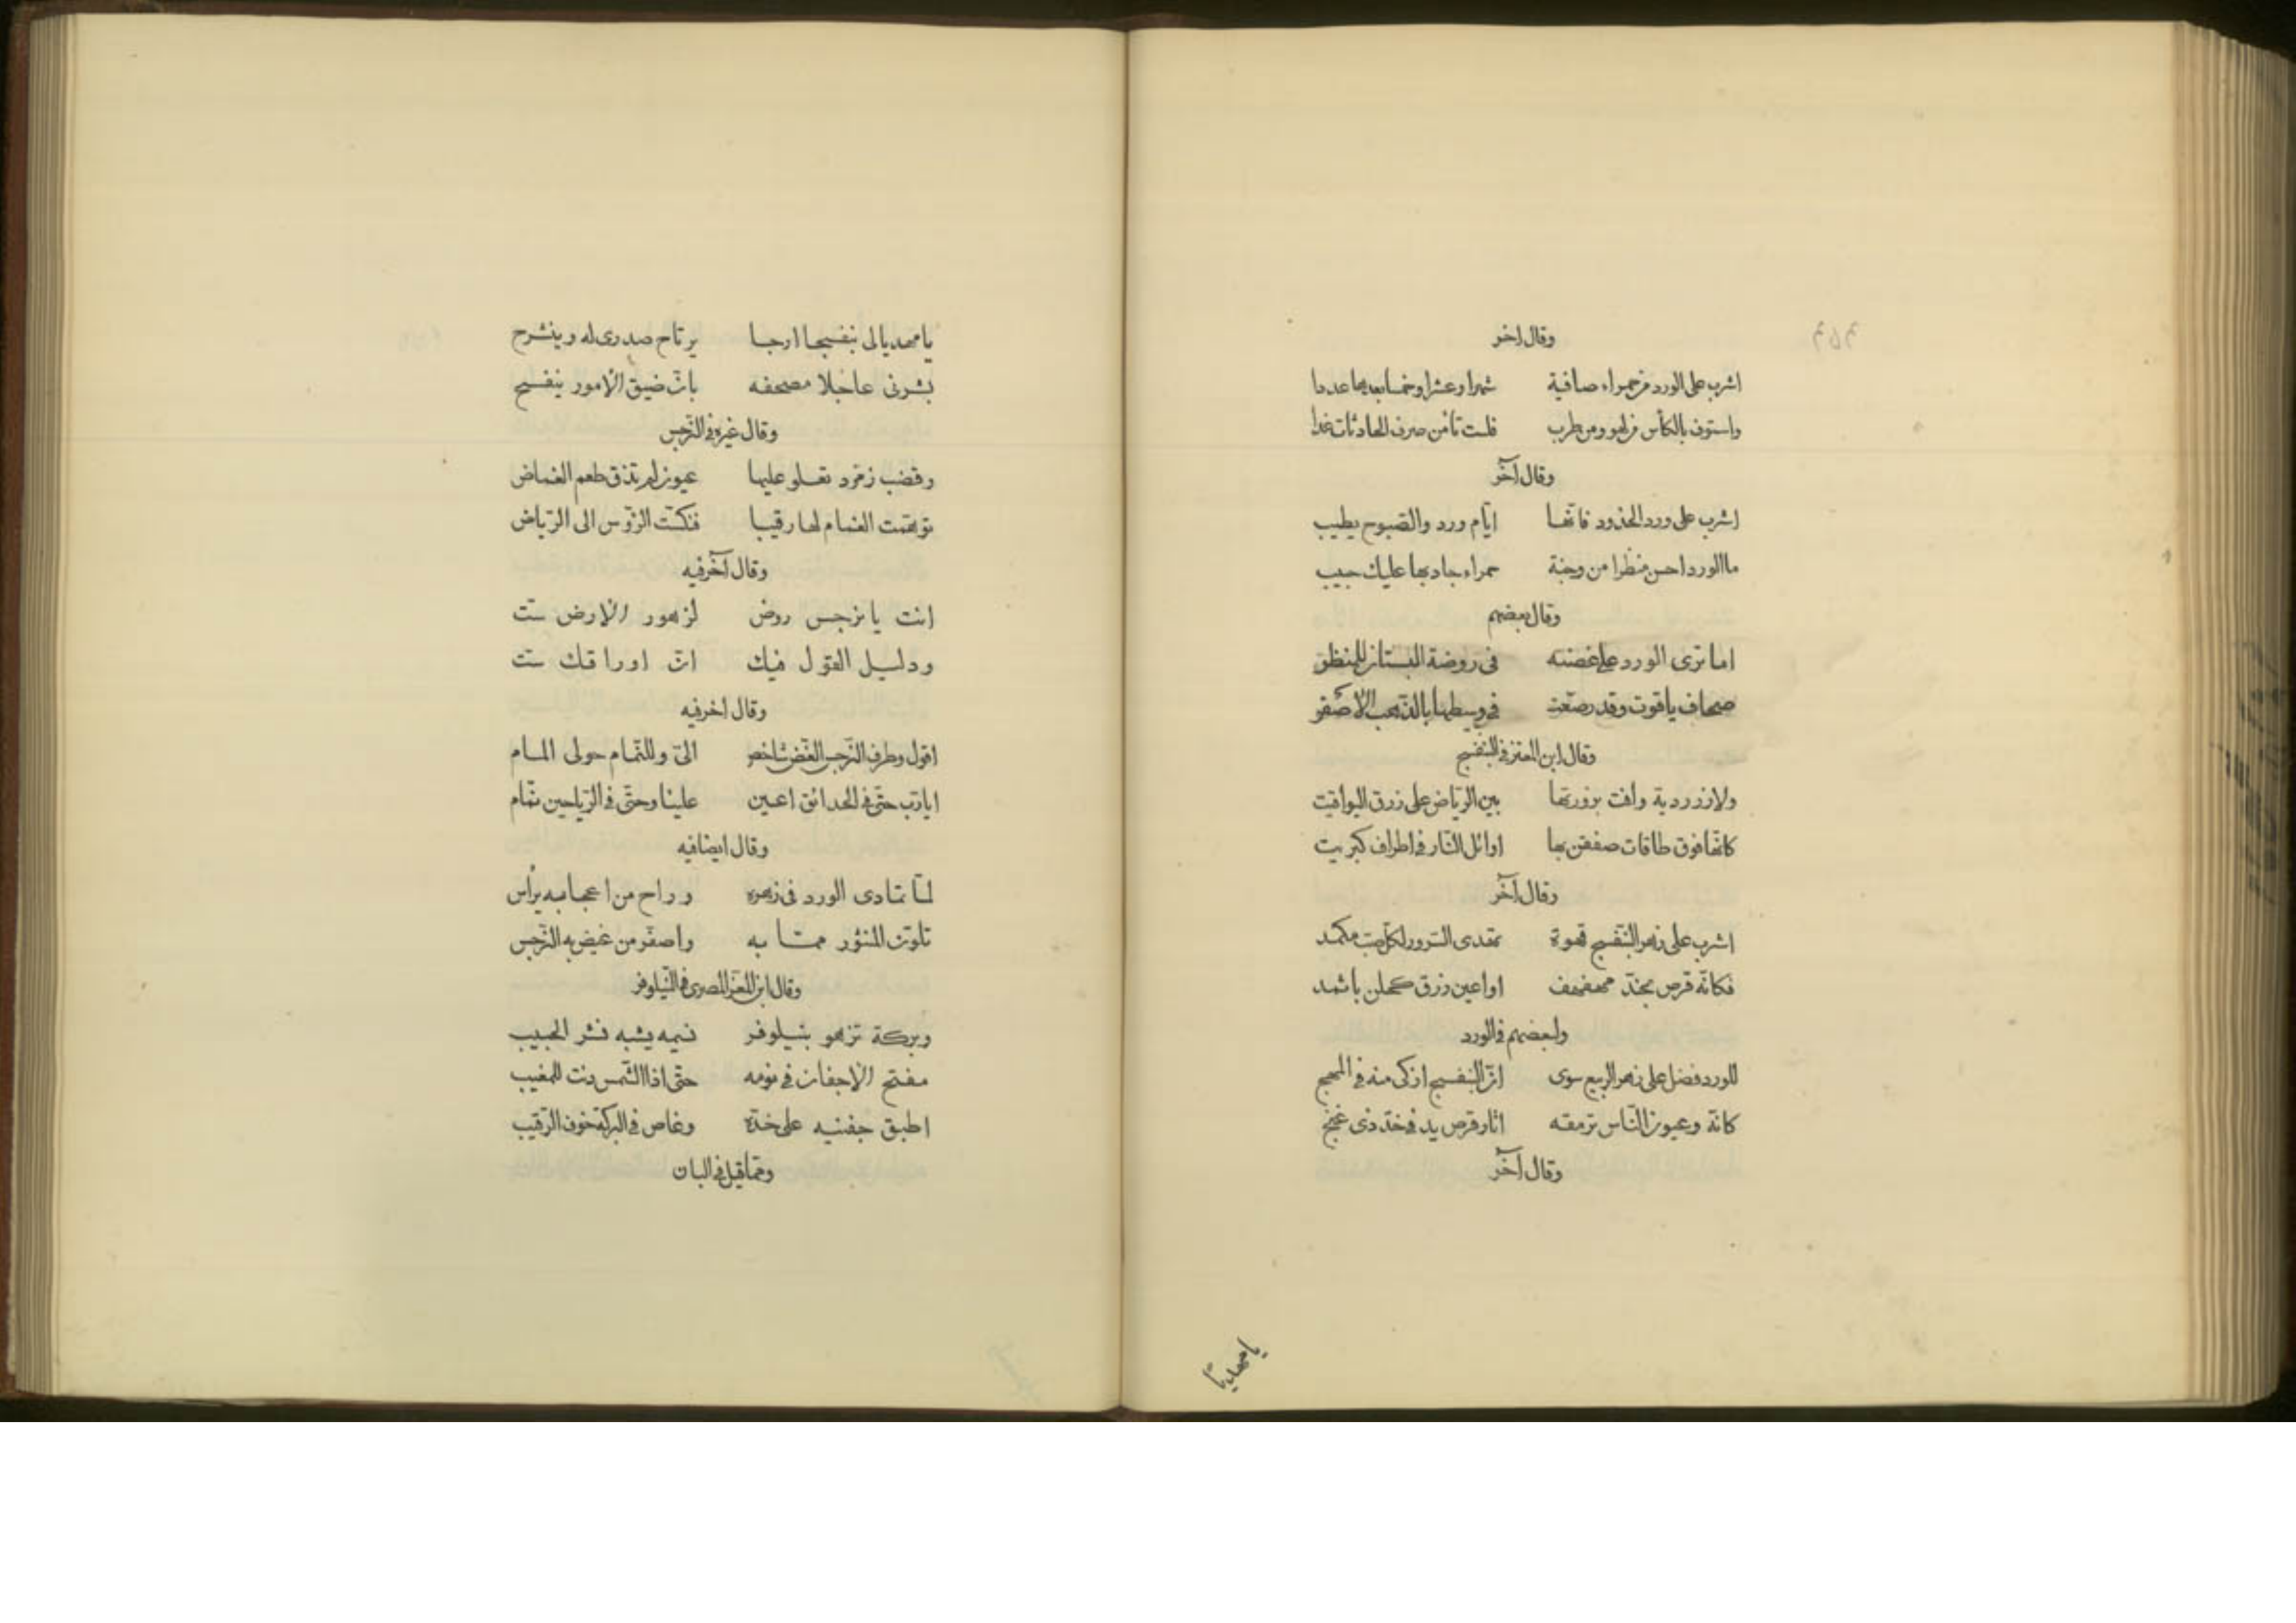 وقال اخر
اشرب على الورد من حمراء صافية شهرا وعشرا وخمسا بعدها عددا
واستوف بالكأس من لهو ومن طرب فلست تأمن صرف الحادثات غدا
وقال آخر
اشرب على ورد الخدود فانّها ايّام ورد والصّبوح يطيب
ما الورد احسن منظرا من وجنة حمراء جاد بها عليك حبيب
وقال بعضهم
اما ترى الورد على غصنه فى روضة البستان للمنظر
صحاف ياقوت وقد رصّعت فى وسطها بالذّهب الاصفر
وقال ابن المعتز فى البنفسج
ولازوردية وافت بزورتها بين الرياض على زرق اليواقيت
كانّها فوق طاقات صففن بها اوائل النّار فى اطراف كبريت
وقال آخر
اشرب على زهر البنفسج قهوة تهدى السّرور لكل صبّ مكمد
فكانّه قرص بخدّ مهفهف او اعين زرق كحلن باثمد
ولبعضهم فى الورد
للورد فضل على زهر الربيع سوى انّ البنفسج ازكى منه فى المهج
كانّه وعيون النّاس ترمقه اثار قرص يد فى خدّ ذى غنج
وقال آخر
يا مهديا
٣٥٣
يا مهديا لى بنفسجا ارجا يرتاح صدرى له وينشرح
بشرنى عاجلا مصحفه بانّ ضيق الامور ينفسح
وقال غيره فى النّرجس
وقضب زمرّد تعلو عليها عيون لم تذق طعم الغماض
توهّمت الغمام لها رقيبا فنكّست الرّؤس الى الرّياض
وقال آخر فيه
انت يا نرجس روض لزهور الارض ستّ
ودليل القول فيك انّ اوراقك ستّ
وقال اخر فيه
اقول وطرف النّرجس الغضّ شاخص الىّ وللنّمام حولى المام
ايا ربّ حتّى فى الحدائق اعين علينا وحتّى فى الرّياحين نمّام
وقال ايضا فيه
لمّا تمادى الورد فى زهوه وراح من اعجابه يرأس
تلوّن المنثور ممّا به واصفرّ من غيض به النّرجس
وقال ابن المعزّ المصرى فى النّيلوفر
وبركة تزهو بنيلوفر نسيمه يشبه نشر الحبيب
مفتح الاجفان فى نومه حتّى اذا الشّمس دنت للمغيب
اطبق جفنيه على خدّه وغاص فى البركة خوف الرّقيب
وممّا قيل فى البان